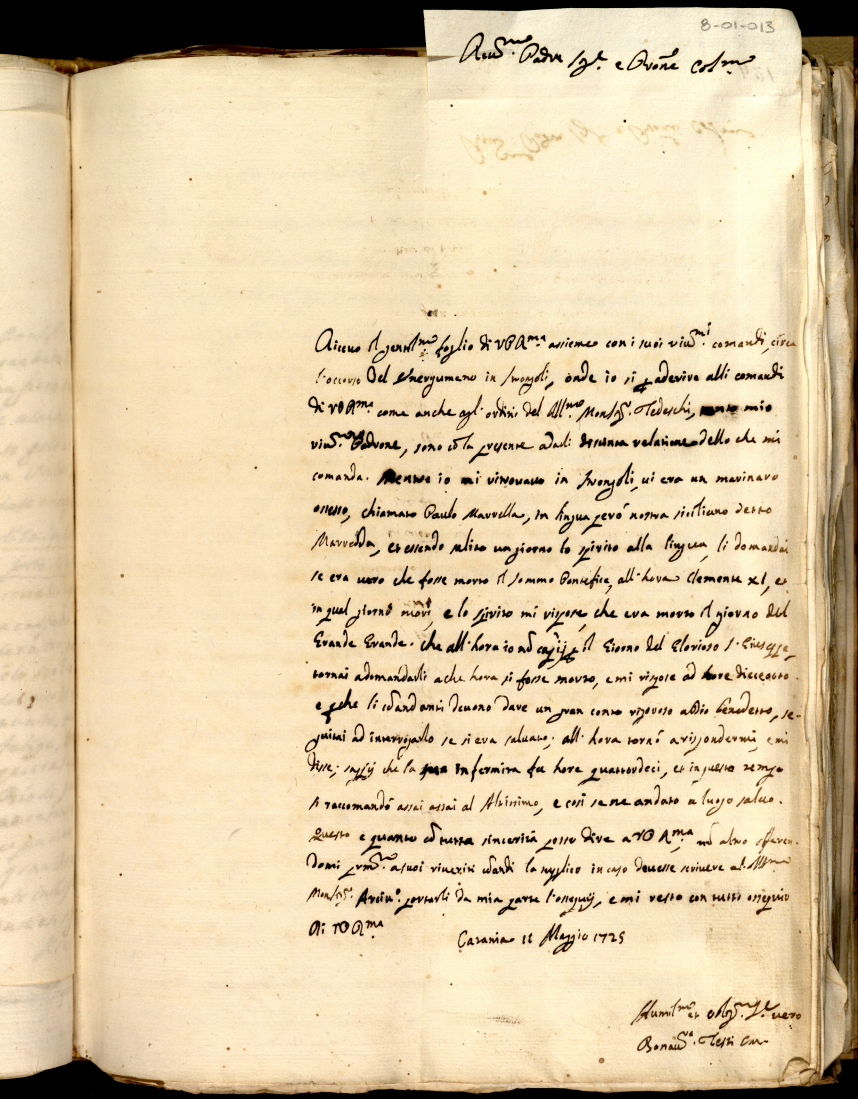 8-01-013
Reu.mo Padre Sig.r e Prone Col.mo
Riceuo il gentil.mo foglio di VP R.ma assiemeo con i suoi riu.mi comandi, circa
l'occorso Del Energumeno in Strongoli, onde io si p aderire alli comandi
di VP R.ma come anche agl'ordini del Ill.mo Monsig.r Tedeschi, mio
riu.mo Padrone, sono cō la presente a darli distinta relatione dello che mi
comanda. Mentre io mi ritrouauo in Strongoli, ui era un marinaro
ossesso, chiamato Paulo Marrella, in lingua però nostra siciliana detto
Marredda, et essendo salito un giorno lo spirito alla lingua, li domandai
se era uero che fosse morto il sommo Pontefice, all'hora Clemente XI, et
in qual giorno morì, e lo spirito mi rispose, che era morto il giorno del
Grande Grande. che all'hora io nō capij p il Giorno del Glorioso S. Giuseppe,
tornai a domandarli a che hora si fosse morto, e mi rispose ad hore dieceotto.
e pche li cōandanti deuono dare un gran conto rigoroso a Dio benedetto, se-
guitai ad interrogarlo se si era saluato; all'hora tornò a rispondermi, e mi
disse; sappij che la sua infermità fu hore quattordeci, et in questo tempo
si raccomandò assai assai al Altissimo, e così se ne andato a luogo saluo.
Questo e quanto cō tutta sincerità posso dire a VP R.ma nō altro
domi a suoi riueriti cōandi la supplico in caso douesse scriuere al Ill.mo
Monsig.r Arciu.o portarli da mia parte l'ossequij, e mi resto con tutto ossequio
Di VP R.ma
Catania 11 Maggio 1725
Humil.mo et Oblig.mo Se.r uero
Bonau.ra Testi